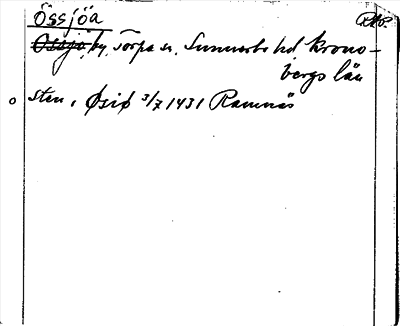 Össjöa RAP.
Össjö, by, Torpa sn, Sunnerbo hd, Krono-
bergs län
o sten, Øsiø 3/7 1431 Ramnäs